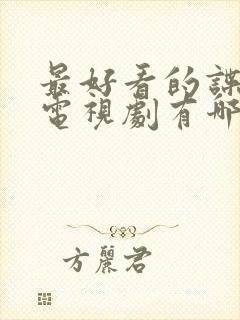 最好看的諜
電視劇有哪
方麗君